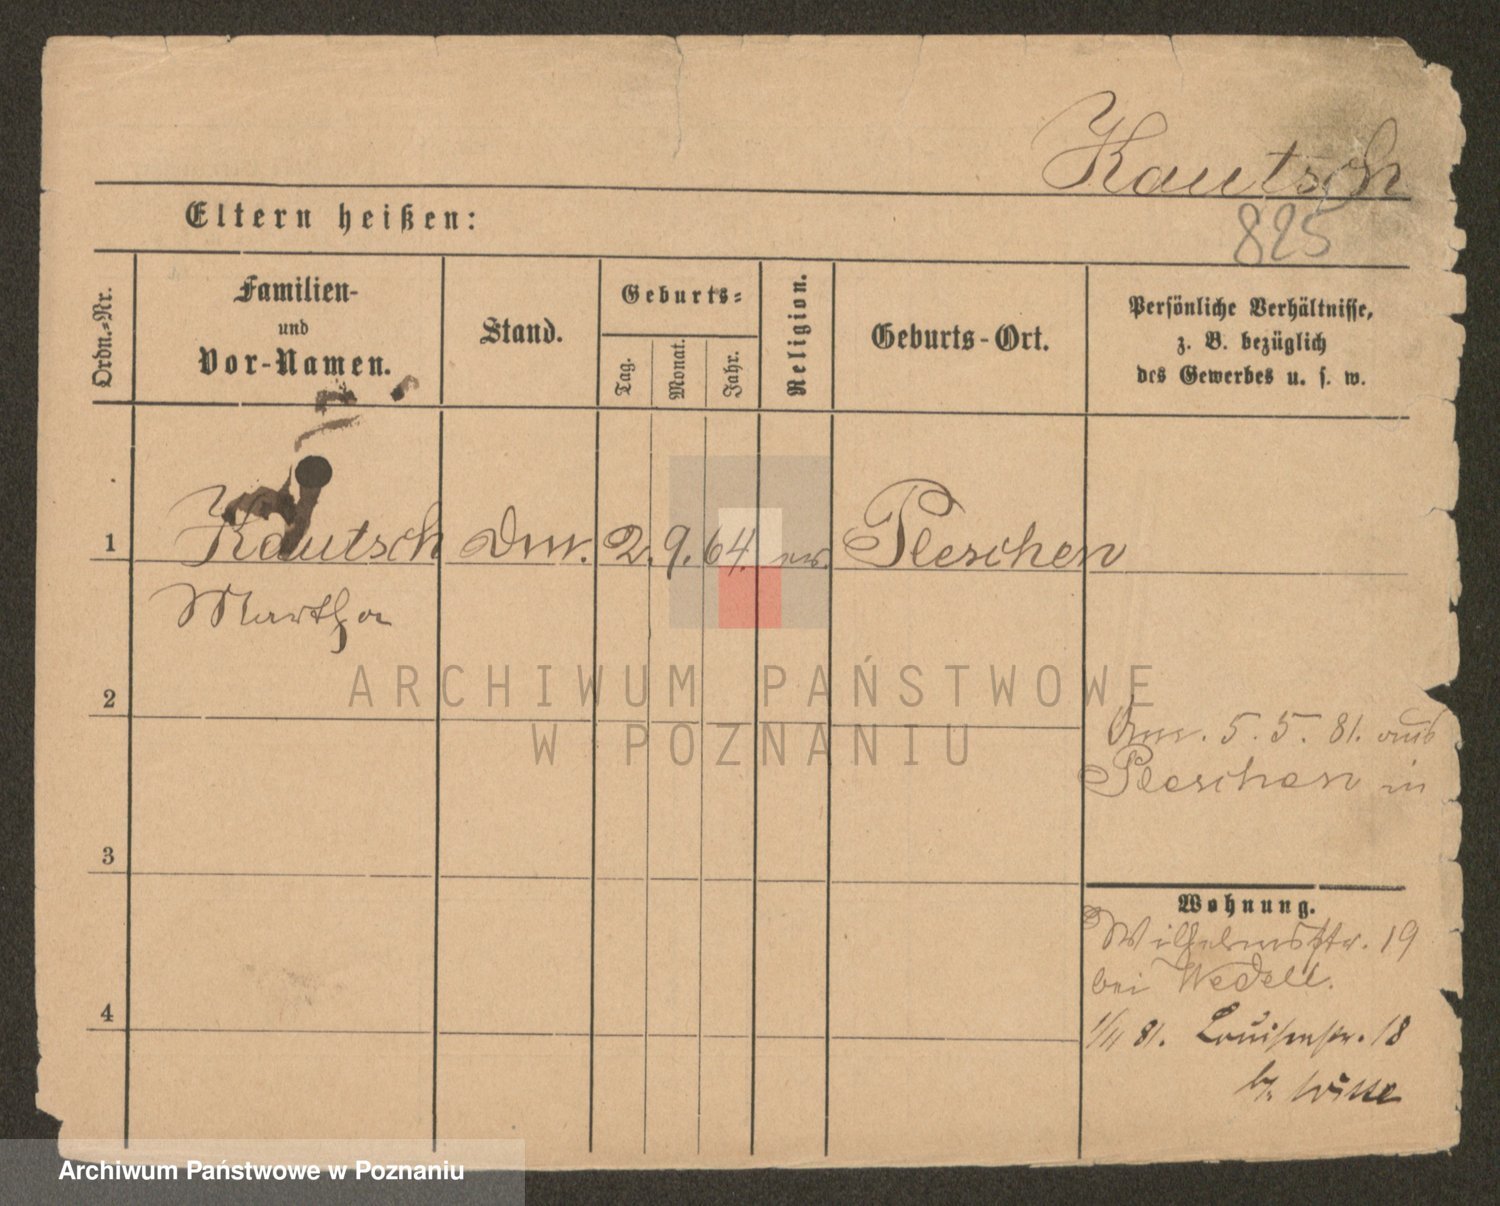 Kautsch
825
Eltern heißen:
Ordn.-Nr.
Familien-
und
Vor-Namen.
Stand.
Geburts-
Tag.
Monat.
Jahr.
Religion.
Geburts-Ort.
Persönliche Verhältnisse,
z. B. bezüglich
des Gewerbes u. s. w.
1 Kautsch 2. 9. 64. ev. Pleschen
Martha
2
5. 5. 81. aus
Pleschen in
3
Wohnung.
Wilhelmsstr. 19
bei Wedell.
4
1/11 81. Louisenstr. 18
b. Witte
ARCHIWUM PAŃSTWOWE
W POZNANIU
Archiwum Państwowe w Poznaniu